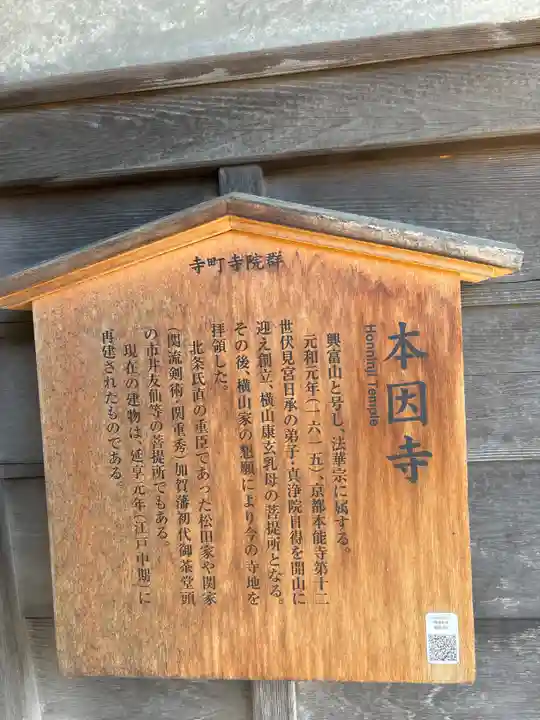 寺町寺院群
本因寺
Honninji Temple
興富山と号し、法華宗に属する。
元和元年(一六一五)、京都本能寺第十二
世伏見宮日承の弟子・真浄院日得を開山に
迎え創立、横山康玄乳母の菩提所となる。
その後、横山家の懇願により今の寺地を
拝領した。
北条氏直の重臣であった松田家や関家
(関流剣術・関重秀)加賀藩初代御茶堂頭
の市井友仙等の菩提所でもある。
現在の建物は、延享元年「江戸中期」に
再建されたものである。